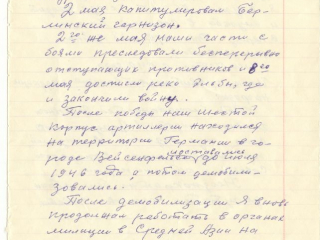 2 мая капитулировал Бер-
линский гарнизон.
2го же мая наши части с
боями преследовали беспрерывно
отступающих противников и 8го
мая достигли реко Эльбы, где
и закончили войну.
После победы наш шестой
корпус артиллерии находился
на территории Германии в го-
роде Вейсенфельс
до июля
1946 года и потом демобили-
зовались.
После демобилизации я вновь
продолжал работать в органах
милиции в Средней Азии на